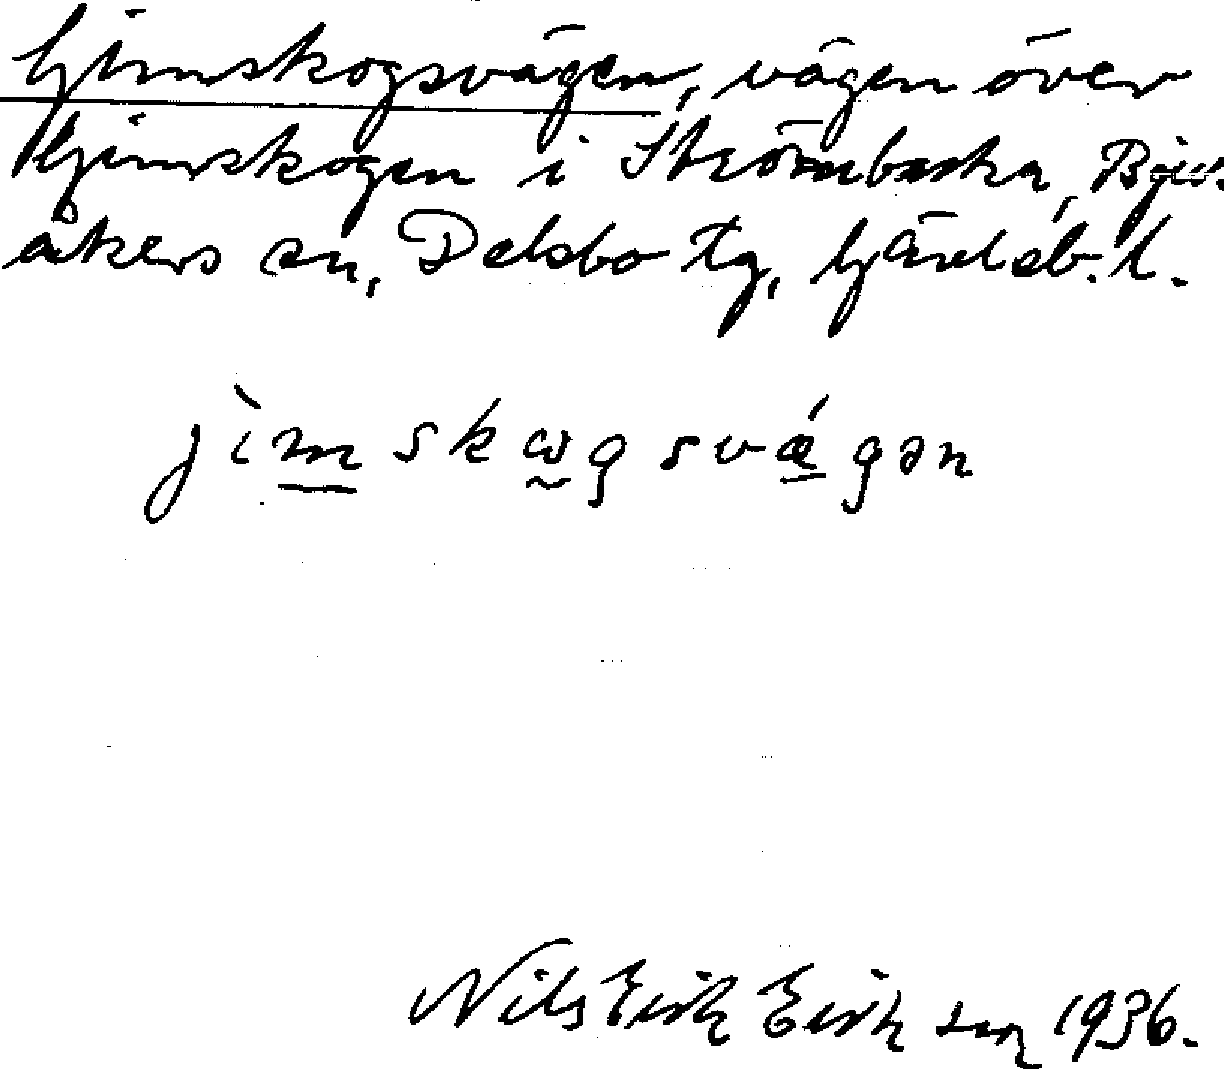 Hjimskogsvägen, vägen över
Hjimskogen i Strömbacka, Bjurs-
åkers sn, Delsbo tg, Gävleb. l.
jìmskωgsvǽgən
Nils Erik Eriksson 1936.